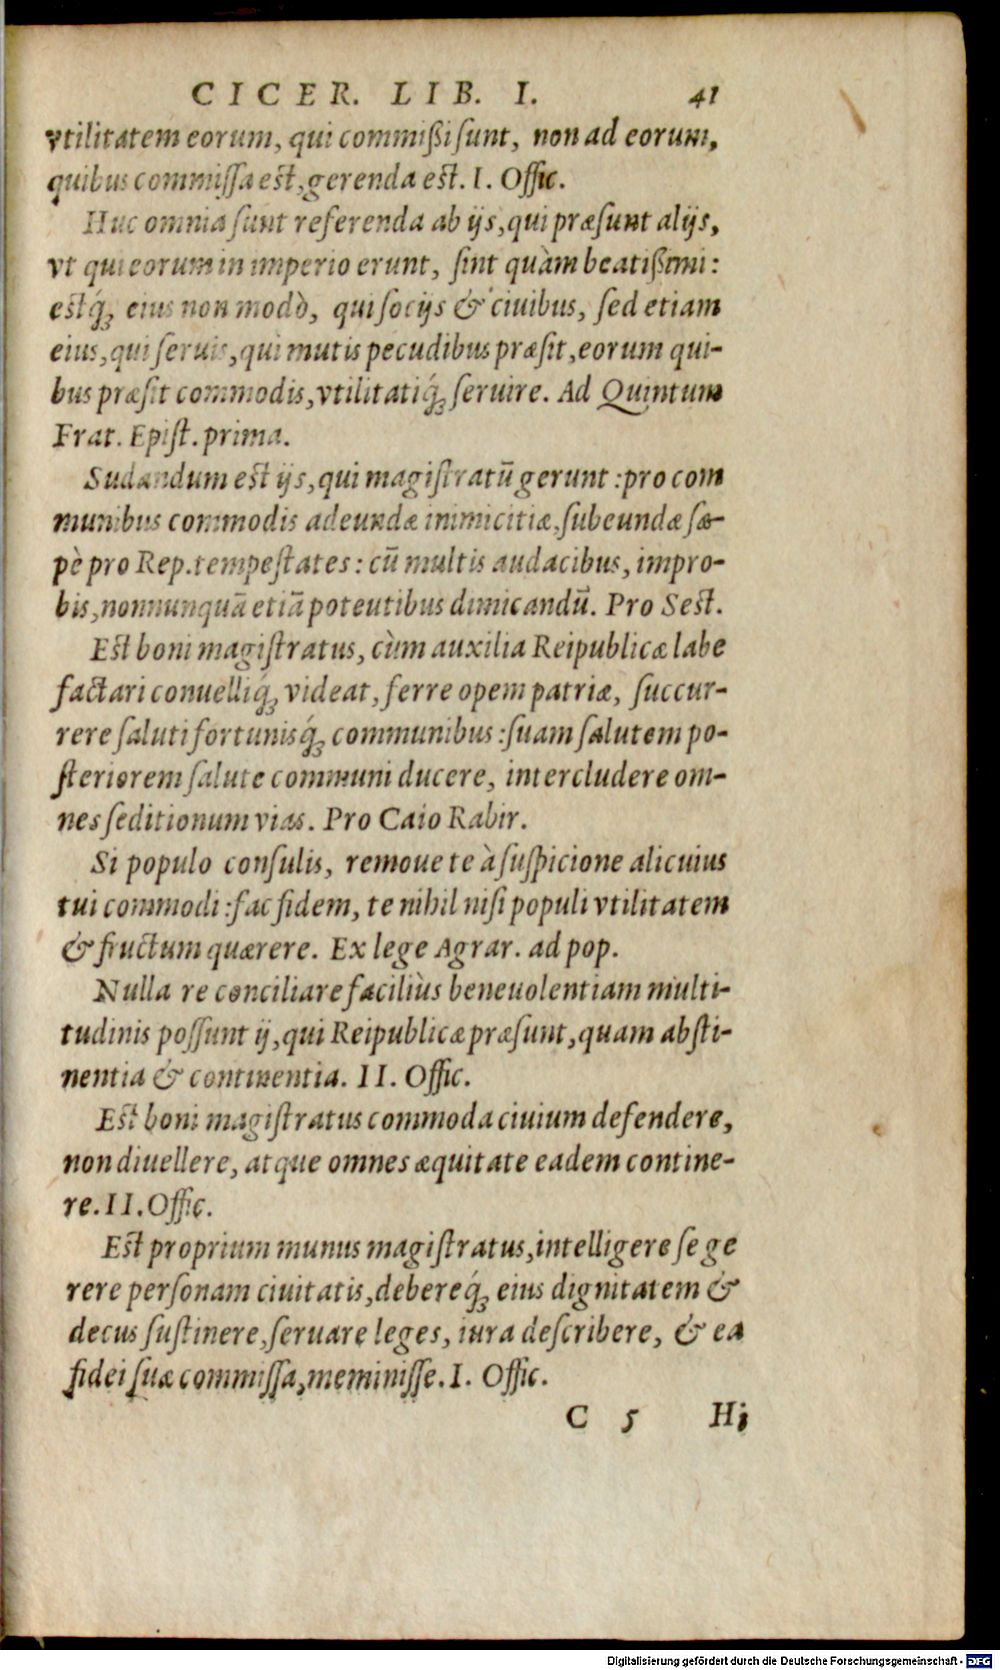 CICER. LIB. I. 41
vtilitatem eorum, qui commißi sunt, non ad eorum,
quibus commissa est, gerenda est. I. Offic.
Huc omnia sunt referenda ab ijs, qui præsunt alijs,
vt qui eorum in imperio erunt, sint quàm beatißimi:
estq́; eius non modò, qui socijs & ciuibus, sed etiam
eius, qui seruis, qui mutis pecudibus præsit, eorum qui-
bus præsit commodis, vtilitatiq́; seruire. Ad Quintum
Frat. Epist. prima.
Sudandum est ijs, qui magistratū gerunt: pro com
munibus commodis adeundæ inimicitiæ, subeundæ sæ-
pè pro Rep. tempestates: cū multis audacibus, impro-
bis, nonnunquā etiā poteutibus dimicandū. Pro Sest.
Est boni magistratus, cùm auxilia Reipublicæ labe
factari conuelliq́; videat, ferre opem patriæ, succur-
rere saluti fortunisq́; communibus: suam salutem po-
steriorem salute communi ducere, intercludere om-
nes seditionum vias. Pro Caio Rabir.
Si populo consulis, remoue te à suspicione alicuius
tui commodi: fac fidem, te nihil nisi populi vtilitatem
& fructum quærere. Ex lege Agrar. ad pop.
Nulla re conciliare faciliùs beneuolentiam multi-
tudinis possunt ij, qui Reipublicæ præsunt, quam absti-
nentia & continentia. II. Offic.
Est boni magistratus commoda ciuium defendere,
non diuellere, atque omnes æquitate eadem contine-
re. II. Offic.
Est proprium munus magistratus, intelligere se ge
rere personam ciuitatis, debereq́; eius dignitatem &
decus sustinere, seruare leges, iura describere, & ea
fidei suæ commissa, meminisse. I. Offic.
C 5 Hi
Digitalisierung gefördert durch die Deutsche Forschungsgemeinschaft - DFG